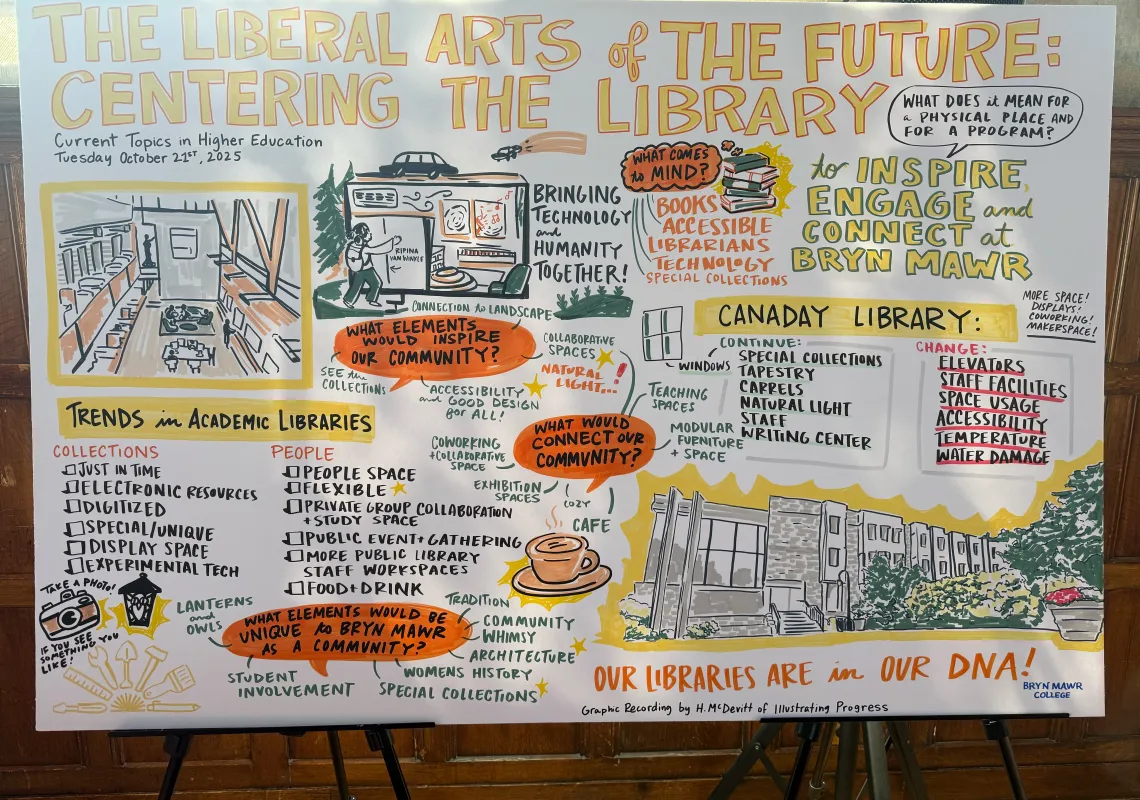 THE LIBERAL ARTS of THE FUTURE:
CENTERING THE LIBRARY
Current Topics in Higher Education
Tuesday October 21ST, 2025
WHAT DOES it MEAN FOR
a PHYSICAL PLACE AND
FOR A PROGRAM?
to INSPIRE,
ENGAGE and
CONNECT at
BRYN MAWR
RIPINA
VAN WINKLE
BRINGING
TECHNOLOGY
and
HUMANITY
TOGETHER!
WHAT COMES
to MIND?
BOOKS
ACCESSIBLE
LIBRARIANS
TECHNOLOGY
SPECIAL COLLECTIONS
CONNECTION to LANDSCAPE
WHAT ELEMENTS
WOULD INSPIRE
OUR COMMUNITY?
SEE the
COLLECTIONS
ACCESSIBILITY
and GOOD DESIGN
for ALL!
COLLABORATIVE
SPACES
NATURAL
LIGHT...!
CANADAY LIBRARY:
MORE SPACE!
DISPLAYS!
COWORKING!
MAKERSPACE!
WINDOWS
CONTINUE:
SPECIAL COLLECTIONS
TAPESTRY
CARRELS
NATURAL LIGHT
STAFF
WRITING CENTER
CHANGE:
ELEVATORS
STAFF FACILITIES
SPACE USAGE
ACCESSIBILITY
TEMPERATURE
WATER DAMAGE
TRENDS in ACADEMIC LIBRARIES
COLLECTIONS
JUST IN TIME
ELECTRONIC RESOURCES
DIGITIZED
SPECIAL/UNIQUE
DISPLAY SPACE
EXPERIMENTAL TECH
PEOPLE
PEOPLE SPACE
FLEXIBLE
PRIVATE GROUP COLLABORATION
+ STUDY SPACE
PUBLIC EVENT + GATHERING
MORE PUBLIC LIBRARY
STAFF WORKSPACES
FOOD + DRINK
WHAT WOULD
CONNECT OUR
COMMUNITY?
TEACHING
SPACES
MODULAR
FURNITURE
+ SPACE
COWORKING
+COLLABORATIVE
SPACE
EXHIBITION
SPACES
COZY
CAFE
TAKE A PHOTO!
IF YOU SEE
SOMETHING YOU
LIKE!
WHAT ELEMENTS WOULD BE
UNIQUE to BRYN MAWR
AS A COMMUNITY?
LANTERNS
and
OWLS
STUDENT
INVOLVEMENT
TRADITION
COMMUNITY
WHIMSY
ARCHITECTURE
WOMENS HISTORY
SPECIAL COLLECTIONS
OUR LIBRARIES ARE in OUR DNA!
BRYN MAWR
COLLEGE
Graphic Recording by H. McDevitt of Illustrating Progress